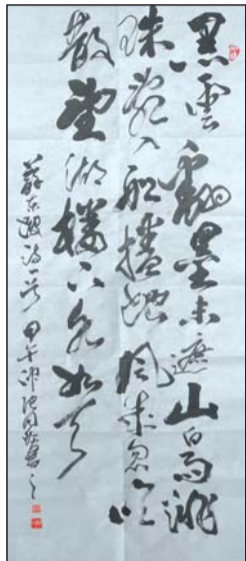 黑雲翻墨未遮山白雨跳
珠亂入船捲地風來忽吹
散望湖樓下水如天
蘇東坡詩一首 甲午 書